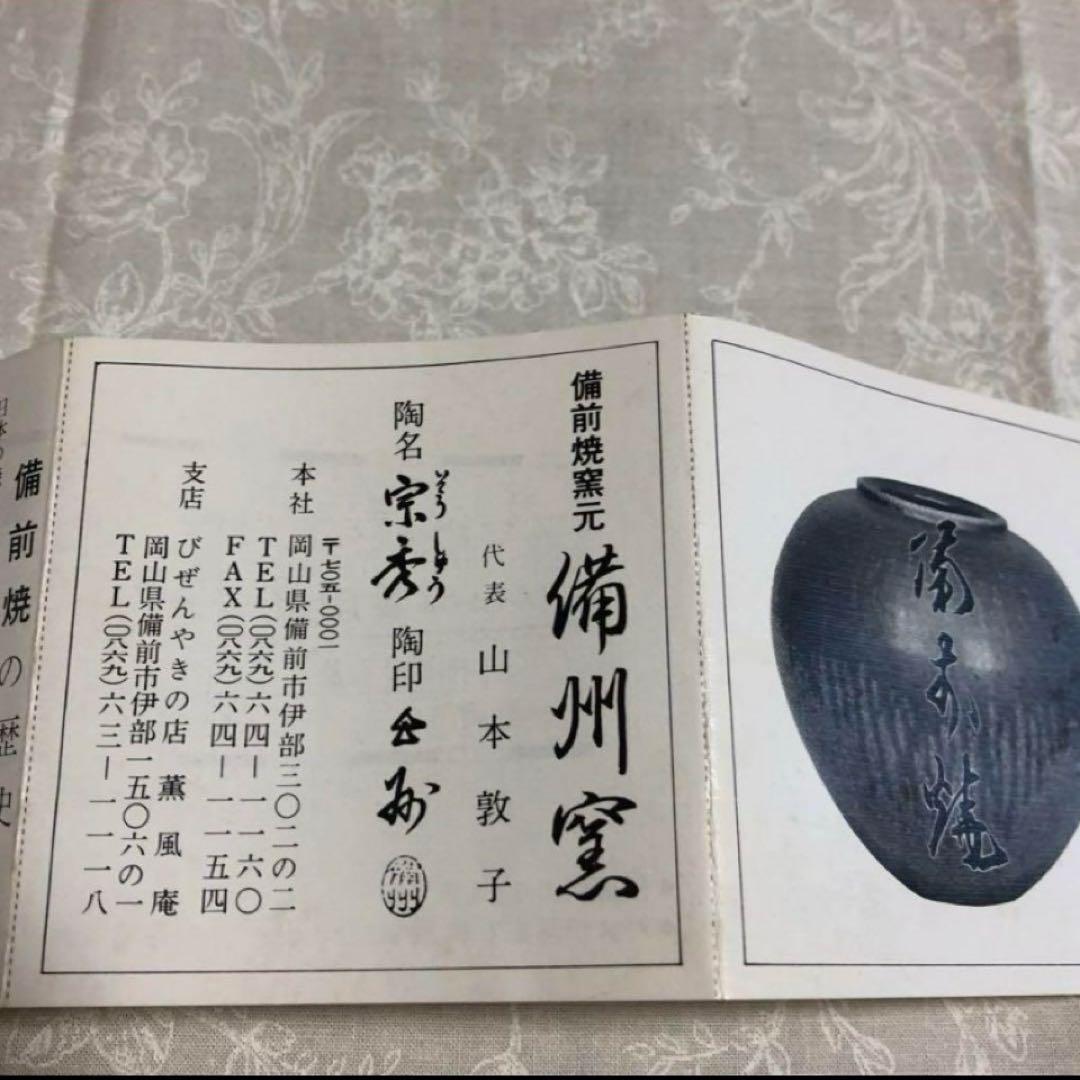 備前焼
備前焼窯元
備州窯
代表 山本敦子
陶名 宗秀 陶印
そうしゅう
〒七〇五-〇〇〇一
本社 岡山県備前市伊部三〇二の二
TEL(〇八六九)六四-一一六〇
FAX(〇八六九)六四-一一五四
支店 びぜんやきの店 薫風庵
岡山県備前市伊部一五〇六の一
TEL(〇八六九)六三-一一一八
備前焼の歴史